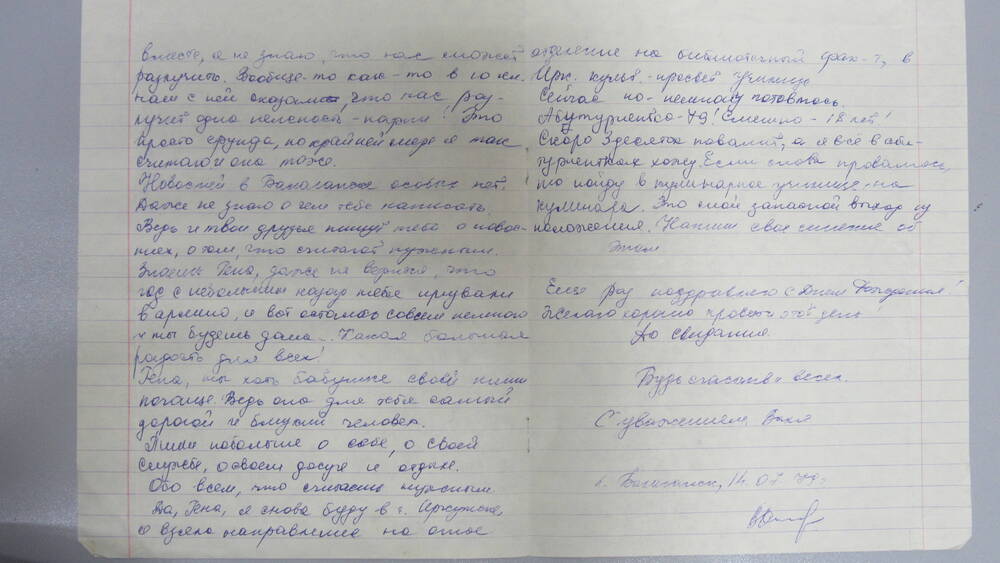 вместе, я не знаю, что нас сможет
разлучить. Вообще-то как-то в 10 кл.
нам с ней сказали, что нас раз-
лучит одна нелепость - парни! Это
просто ерунда, по крайней мере я так
считаю и она тоже.
Новостей в Балаганске особых нет.
Даже не знаю о чем тебе написать.
Ведь и твои друзья пишут тебе о новос-
тях, о том, что считают нужным.
Знаешь Гена, даже не верится, что
год с небольшим назад тебя призвали
в армию, и вот осталось совсем немного
и ты будешь дома... Какая большая
радость для всех!
Гена, ты хоть бабушке своей пиши
почаще. Ведь она для тебя самый
дорогой и близкий человек.
Пиши побольше о себе, о своей
службе, о своем досуге и отдыхе.
Обо всем, что считаешь нужным.
Да, Гена, я снова буду в г. Иркутске,
взяла направление на
отделение на библиотечный фак-т, в
Ирк. культ.-просвет училище
Сейчас по-немногу готовлюсь.
Абитуриентка-79! Смешно - 18 лет!
Скоро 2 десяток повалит, а я всё в аби-
туриентках хожу. Если снова провалюсь,
то пойду в кулинарное училище - на
кулинара. Это мой запасной выход из
положения. Напиши свое мнение об
этом
Еще раз поздравляю с Днем Рождения!
Желаю хорошо провести этот день!
До свидания.
Будь счастлив всем.
С уважением
п. Балаганск, 14.07.79г.